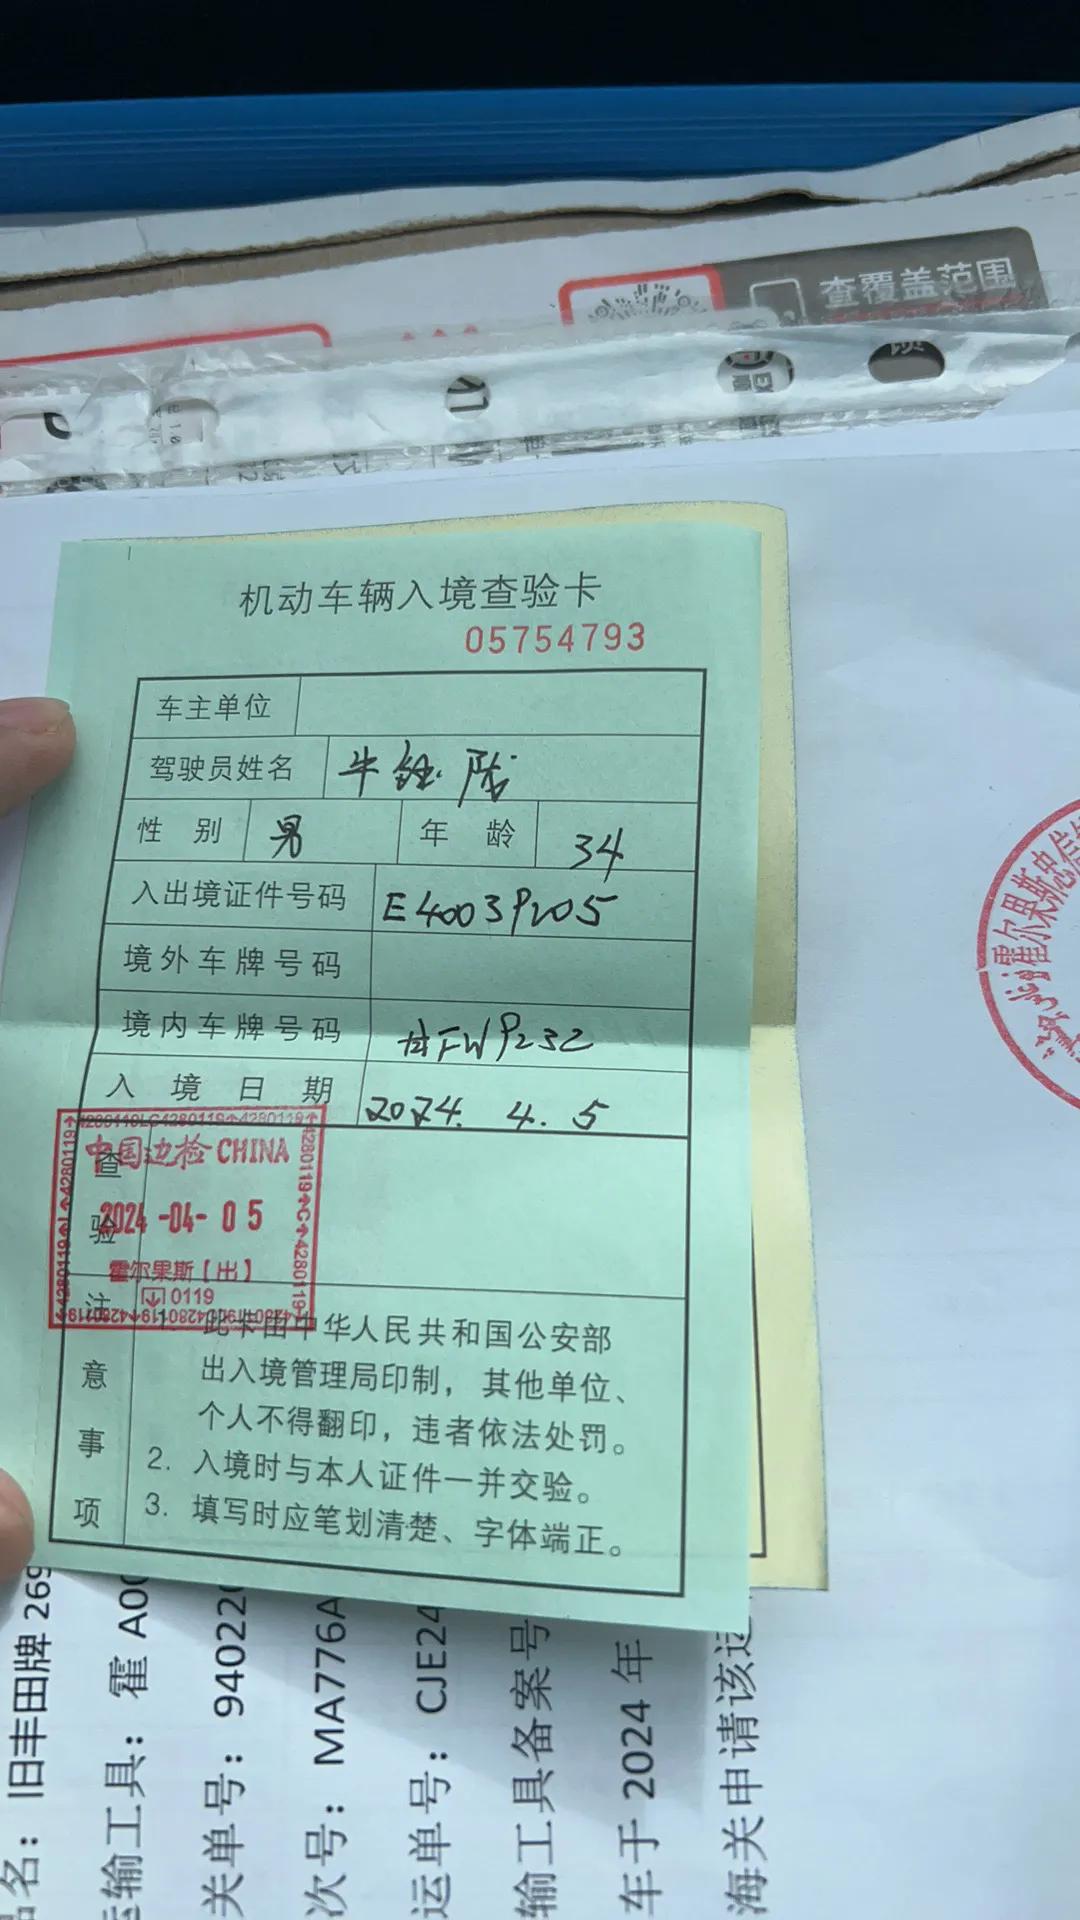 查覆盖范围
机动车辆入境查验卡
05754793
车主单位
驾驶员姓名 牛
性别 男 年龄 34
入出境证件号码 E4003P205
境外车牌号码
境内车牌号码 甘FWP232
入境日期 2024. 4. 5
查验
中国边检 CHINA
2024-04-05
霍尔果斯【出】
0119
注意事项
1. 此卡由中华人民共和国公安部
出入境管理局印制，其他单位、
个人不得翻印，违者依法处罚。
2. 入境时与本人证件一并交验。
3. 填写时应笔划清楚、字体端正。
品名：旧丰田牌 269
运输工具：霍 A0
关单号：94022
次号：MA776A
运单号：CJE24
输工具备案号
车于 2024 年
海关申请该运
霍尔果斯